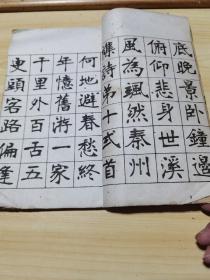 底晚景卧鐘邊
俯仰悲身世溪
風為颯然秦州
集詩第十弍首
何地避春愁終
年憶舊游一家
千里外百舌五
更頭客路偏逢